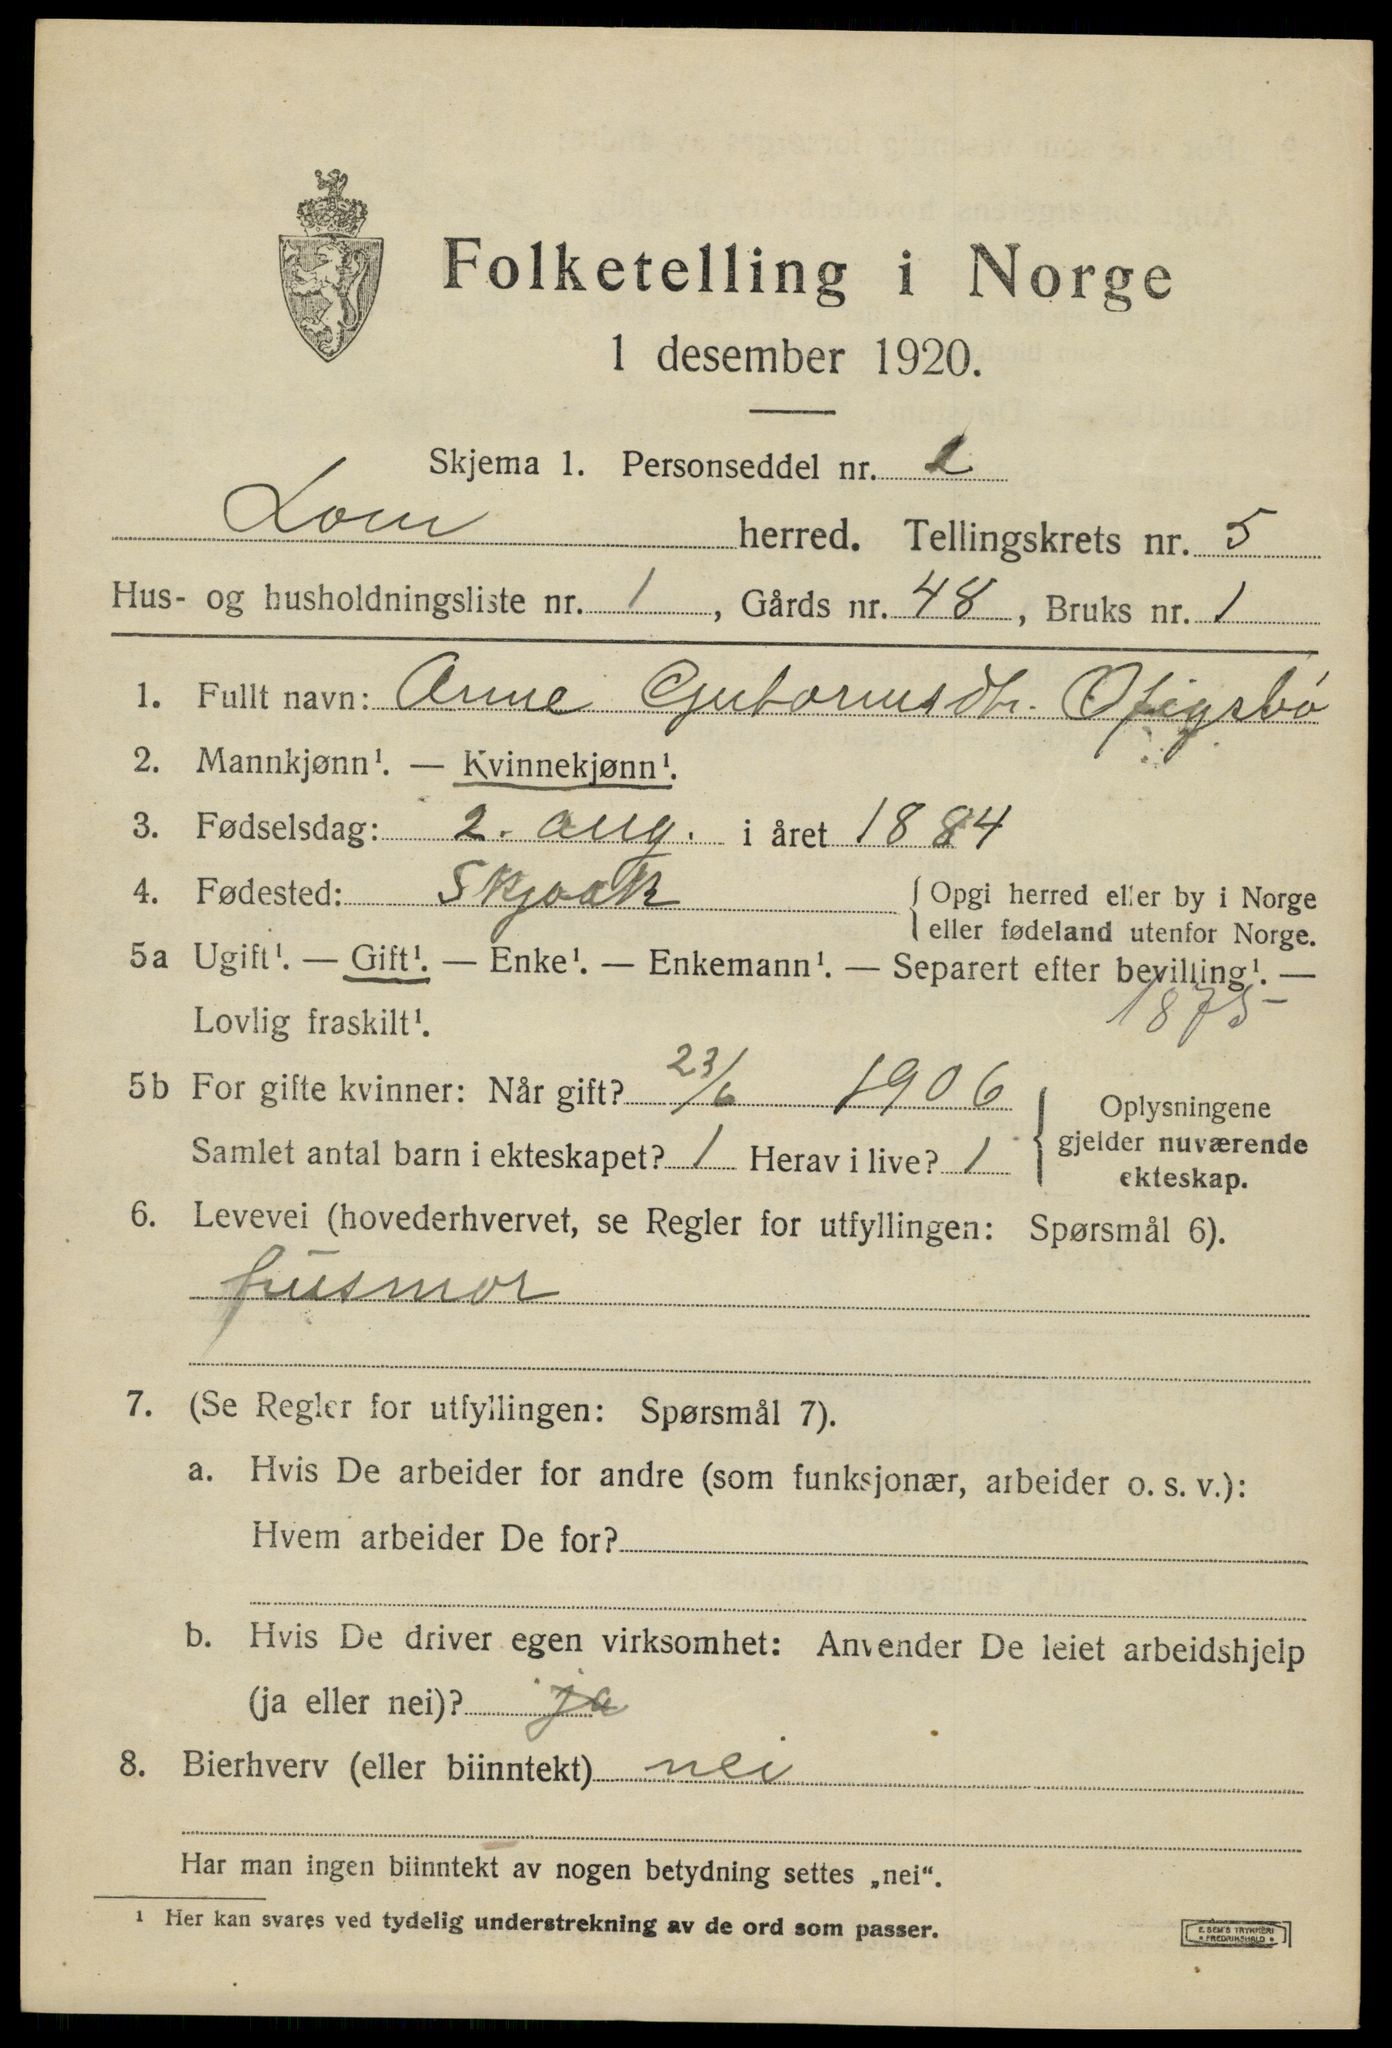 Folketelling i Norge
1 desember 1920.
Skjema 1. Personseddel nr. 2
Lom herred. Tellingskrets nr. 5
Hus- og husholdningsliste nr. 1, Gårds nr. 48, Bruks nr. 1
1. Fullt navn: Anne Guttormsdtr. Ofigsbø
2. Mannkjønn¹. — Kvinnekjønn¹.
3. Fødselsdag: 2. aug. i året 1884
4. Fødested: Skjaak { Opgi herred eller by i Norge
eller fødeland utenfor Norge.
5a Ugift¹. — Gift¹. — Enke¹. — Enkemann¹. — Separert efter bevilling¹. —
Lovlig fraskilt¹. 1875
5b For gifte kvinner: Når gift? 23/6 1906
Samlet antal barn i ekteskapet? 1 Herav i live? 1
Oplysningene
gjelder nuværende
ekteskap.
6. Levevei (hovederhvervet, se Regler for utfyllingen: Spørsmål 6).
husmor
7. (Se Regler for utfyllingen: Spørsmål 7).
a. Hvis De arbeider for andre (som funksjonær, arbeider o. s. v.):
Hvem arbeider De for?
b. Hvis De driver egen virksomhet: Anvender De leiet arbeidshjelp
(ja eller nei)? ja
8. Bierhverv (eller biinntekt) nei
Har man ingen biinntekt av nogen betydning settes „nei“.
¹ Her kan svares ved tydelig understrekning av de ord som passer.
E. SEM'S TRYKKERI
• FREDRIKSHALD •